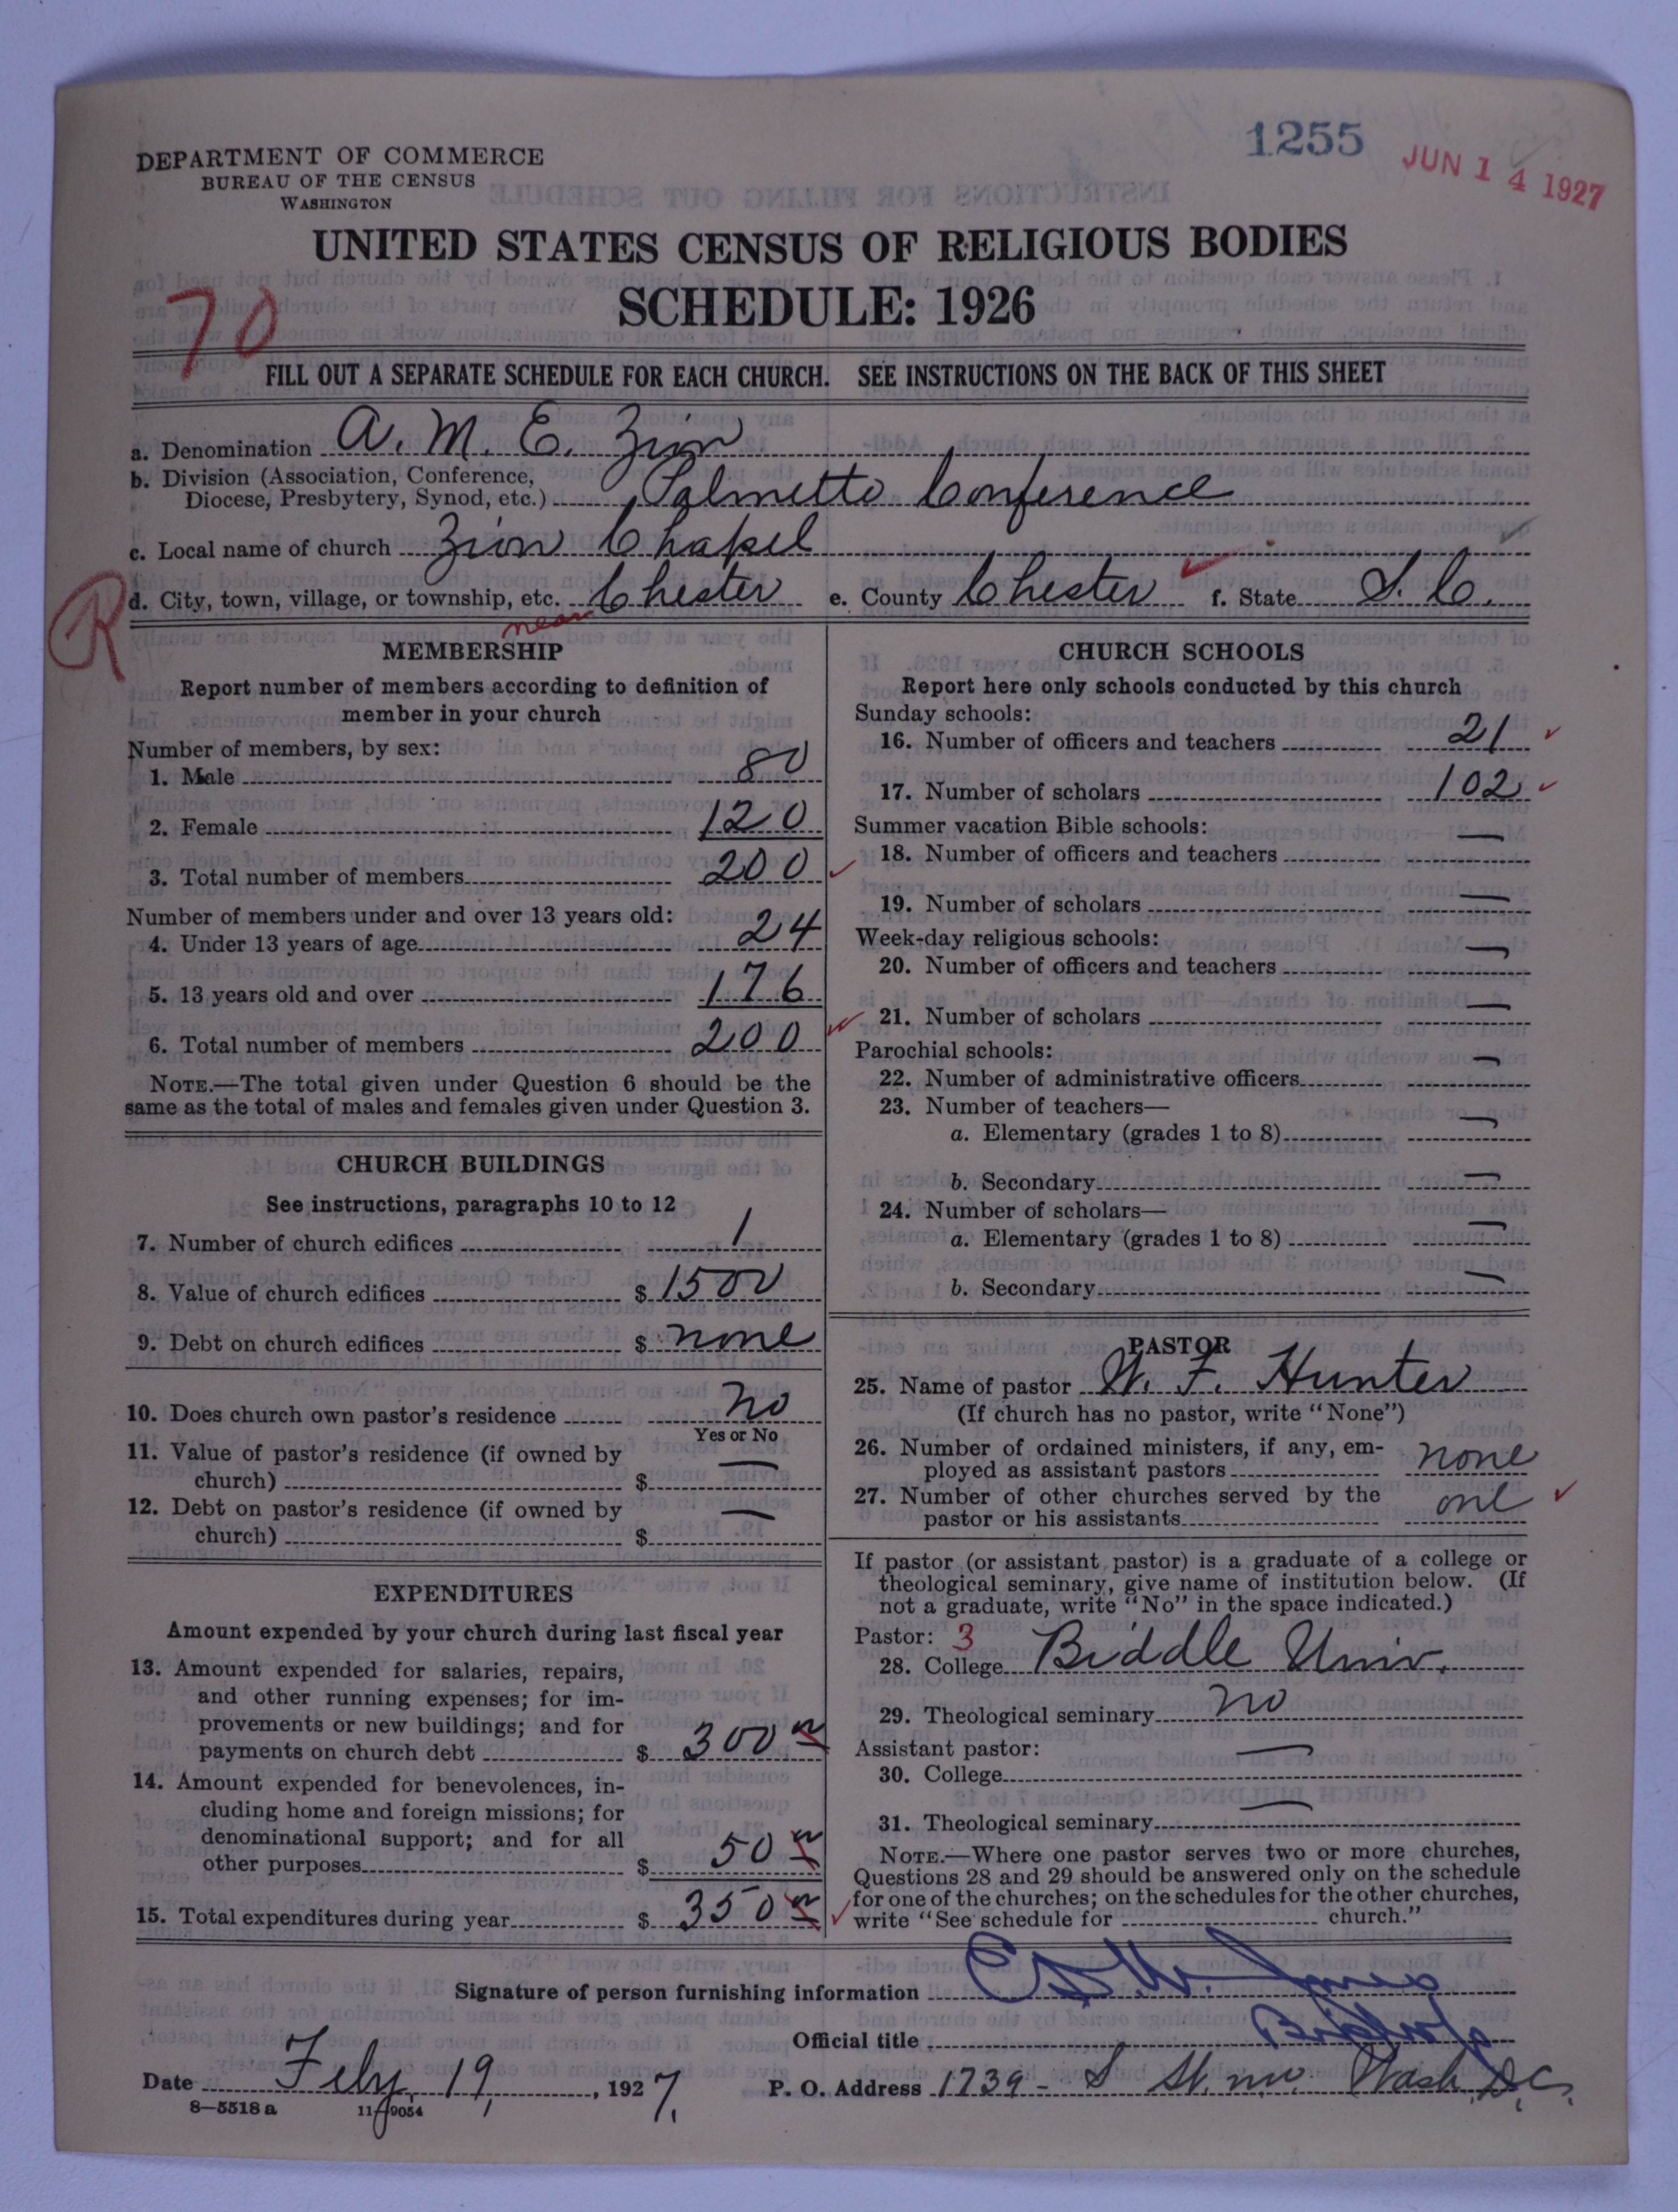 1255
JUN 14 1927
DEPARTMENT OF COMMERCE
BUREAU OF THE CENSUS
WASHINGTON
UNITED STATES CENSUS OF RELIGIOUS BODIES
SCHEDULE: 1926
70
FILL OUT A SEPARATE SCHEDULE FOR EACH CHURCH. SEE INSTRUCTIONS ON THE BACK OF THIS SHEET
a. Denomination A. M. E. Zion
b. Division (Association, Conference,
Diocese, Presbytery, Synod, etc.) Palmetto Conference
c. Local name of church Zion Chapel
R
d. City, town, village, or township, etc. near Chester e. County Chester f. State S. C.
MEMBERSHIP
Report number of members according to definition of
member in your church
Number of members, by sex:
1. Male 80
2. Female 120
3. Total number of members 200
Number of members under and over 13 years old:
4. Under 13 years of age 24
5. 13 years old and over 176
6. Total number of members 200
NOTE.—The total given under Question 6 should be the
same as the total of males and females given under Question 3.
CHURCH BUILDINGS
See instructions, paragraphs 10 to 12
7. Number of church edifices 1
8. Value of church edifices $ 1500
9. Debt on church edifices $ none
10. Does church own pastor's residence no
Yes or No
11. Value of pastor's residence (if owned by
church) $ —
12. Debt on pastor's residence (if owned by
church) $ —
EXPENDITURES
Amount expended by your church during last fiscal year
13. Amount expended for salaries, repairs,
and other running expenses; for im-
provements or new buildings; and for
payments on church debt $ 300
14. Amount expended for benevolences, in-
cluding home and foreign missions; for
denominational support; and for all
other purposes $ 50
15. Total expenditures during year $ 350
CHURCH SCHOOLS
Report here only schools conducted by this church
Sunday schools:
16. Number of officers and teachers 21
17. Number of scholars 102
Summer vacation Bible schools:
18. Number of officers and teachers —
19. Number of scholars —
Week-day religious schools:
20. Number of officers and teachers —
21. Number of scholars —
Parochial schools:
22. Number of administrative officers —
23. Number of teachers—
a. Elementary (grades 1 to 8) —
b. Secondary —
24. Number of scholars—
a. Elementary (grades 1 to 8) —
b. Secondary —
PASTOR
25. Name of pastor W. F. Hunter
(If church has no pastor, write "None")
26. Number of ordained ministers, if any, em-
ployed as assistant pastors none
27. Number of other churches served by the
pastor or his assistants one
If pastor (or assistant pastor) is a graduate of a college or
theological seminary, give name of institution below. (If
not a graduate, write "No" in the space indicated.)
Pastor: 3
28. College Biddle Univ.
29. Theological seminary no
Assistant pastor:
30. College —
31. Theological seminary —
NOTE.—Where one pastor serves two or more churches,
Questions 28 and 29 should be answered only on the schedule
for one of the churches; on the schedules for the other churches,
write "See schedule for church."
Signature of person furnishing information Jones
Official title Bishop
Date Feby. 19, 1927. P. O. Address 1739 - S St. n.w. Wash. D.C.
8—5518 a 11—9054